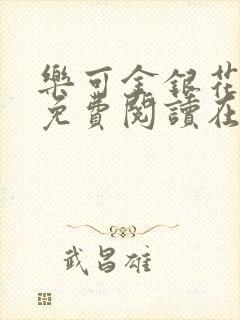 樂可金銀花
免費閱讀在
武昌雄